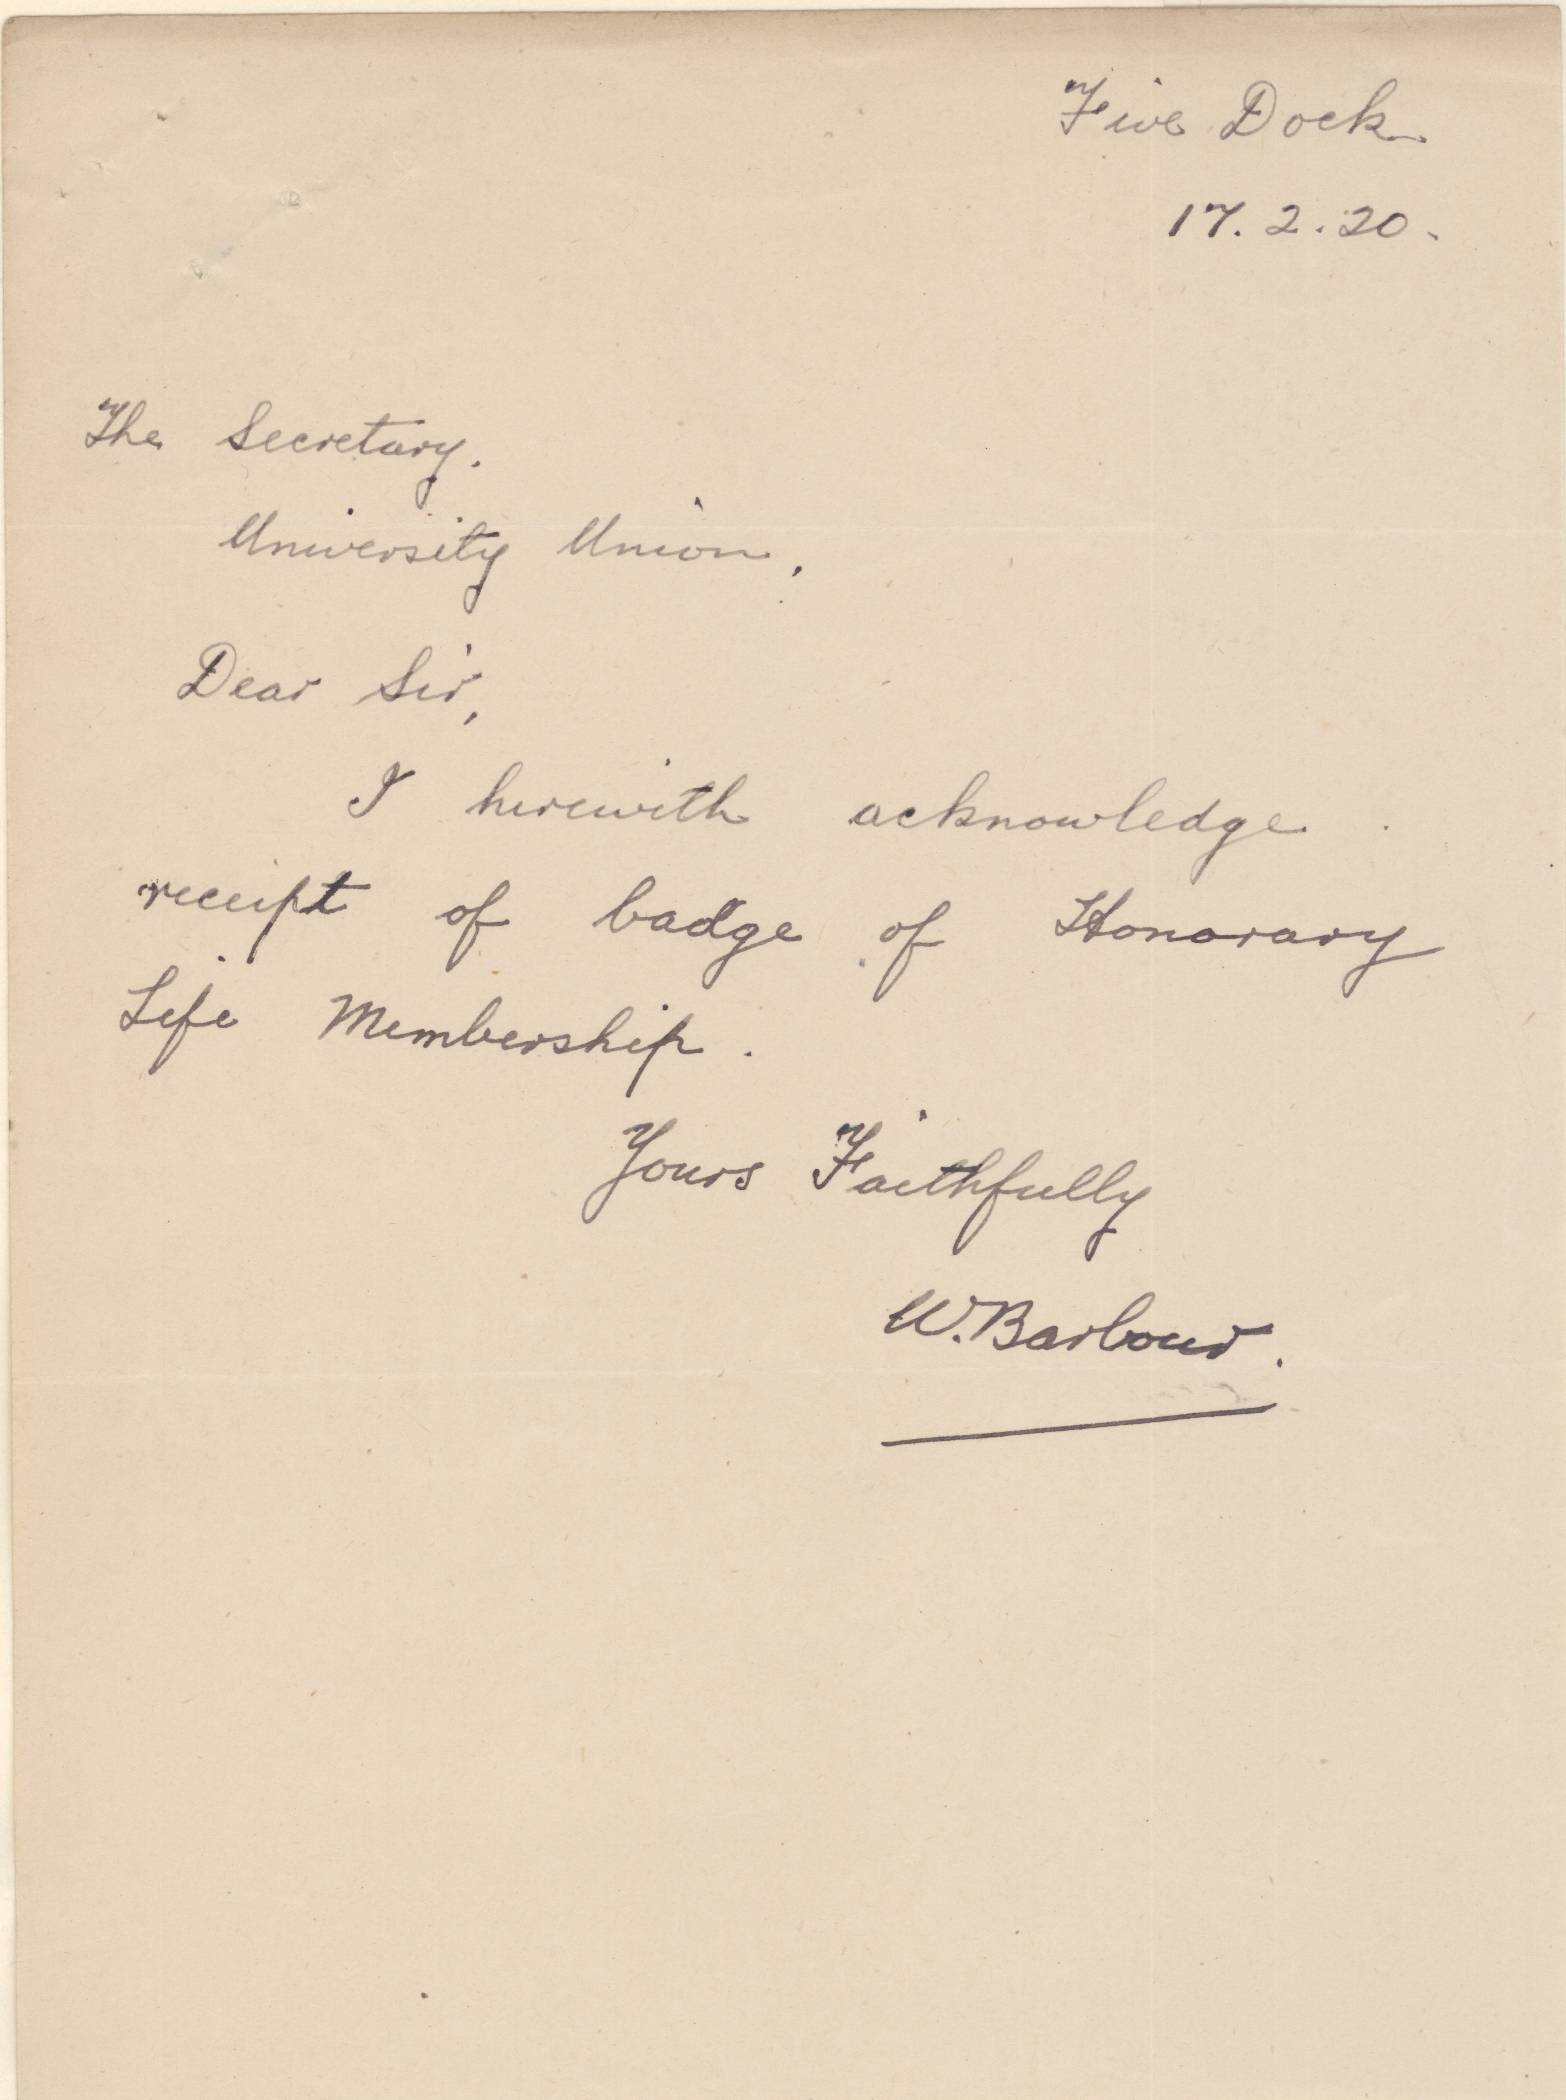 Five Dock
17.2.20.
The Secretary.
University Union.
Dear Sir,
I herewith acknowledge
receipt of badge of Honorary
Life Membership.
Yours Faithfully
W. Barbour.